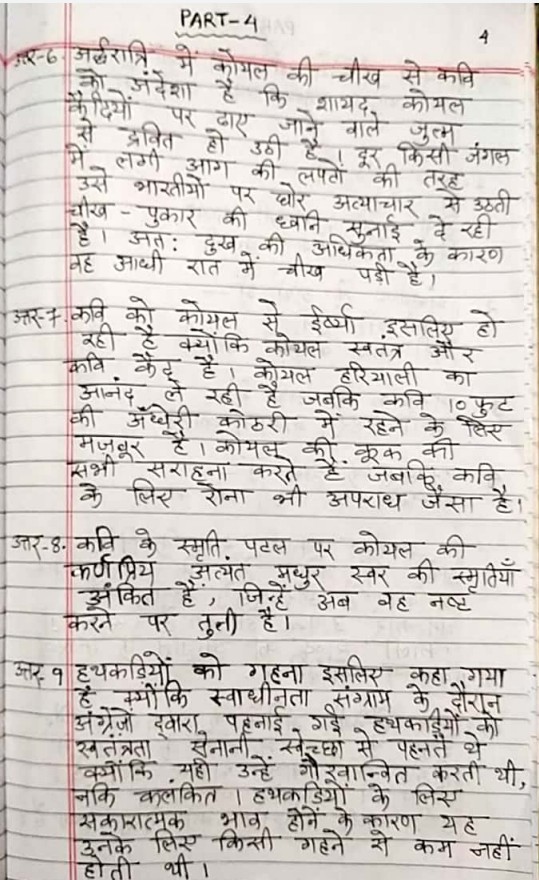 PART-4
4
उत्तर-6. अर्द्धरात्रि में कोयल की चीख से कवि
को अंदेशा है कि शायद कोयल
कैदियों पर ढाए जाने वाले जुल्म
से द्रवित हो उठी है। दूर किसी जंगल
में लगी आग की लपटों की तरह
उसे भारतीयों पर घोर अत्याचार से उठती
चीख-पुकार की ध्वनि सुनाई दे रही
है। अत: दुख की अधिकता के कारण
वह आधी रात में चीख पड़ी है।
उत्तर-7. कवि को कोयल से ईर्ष्या इसलिए हो
रही है क्योंकि कोयल स्वतंत्र और
कवि कैद है। कोयल हरियाली का
आनंद ले रही है जबकि कवि 10 फुट
की अँधेरी कोठरी में रहने के लिए
मजबूर है। कोयल की कूक की
सभी सराहना करते हैं जबकि कवि
के लिए रोना भी अपराध जैसा है।
उत्तर-8. कवि के स्मृति पटल पर कोयल की
कर्णप्रिय अत्यंत मधुर स्वर की स्मृतियाँ
अंकित हैं, जिन्हें अब वह नष्ट
करने पर तुली है।
उत्तर-9 हथकड़ियों को गहना इसलिए कहा गया
है क्योंकि स्वाधीनता संग्राम के दौरान
अंग्रेजों द्वारा पहनाई गई हथकड़ियों को
स्वतंत्रता सेनानी स्वेच्छा से पहनते थे
क्योंकि यही उन्हें गौरवान्वित करती थी,
नकि कलंकित। हथकड़ियों के लिए
सकारात्मक भाव होने के कारण यह
उनके लिए किसी गहने से कम नहीं
होती थी।